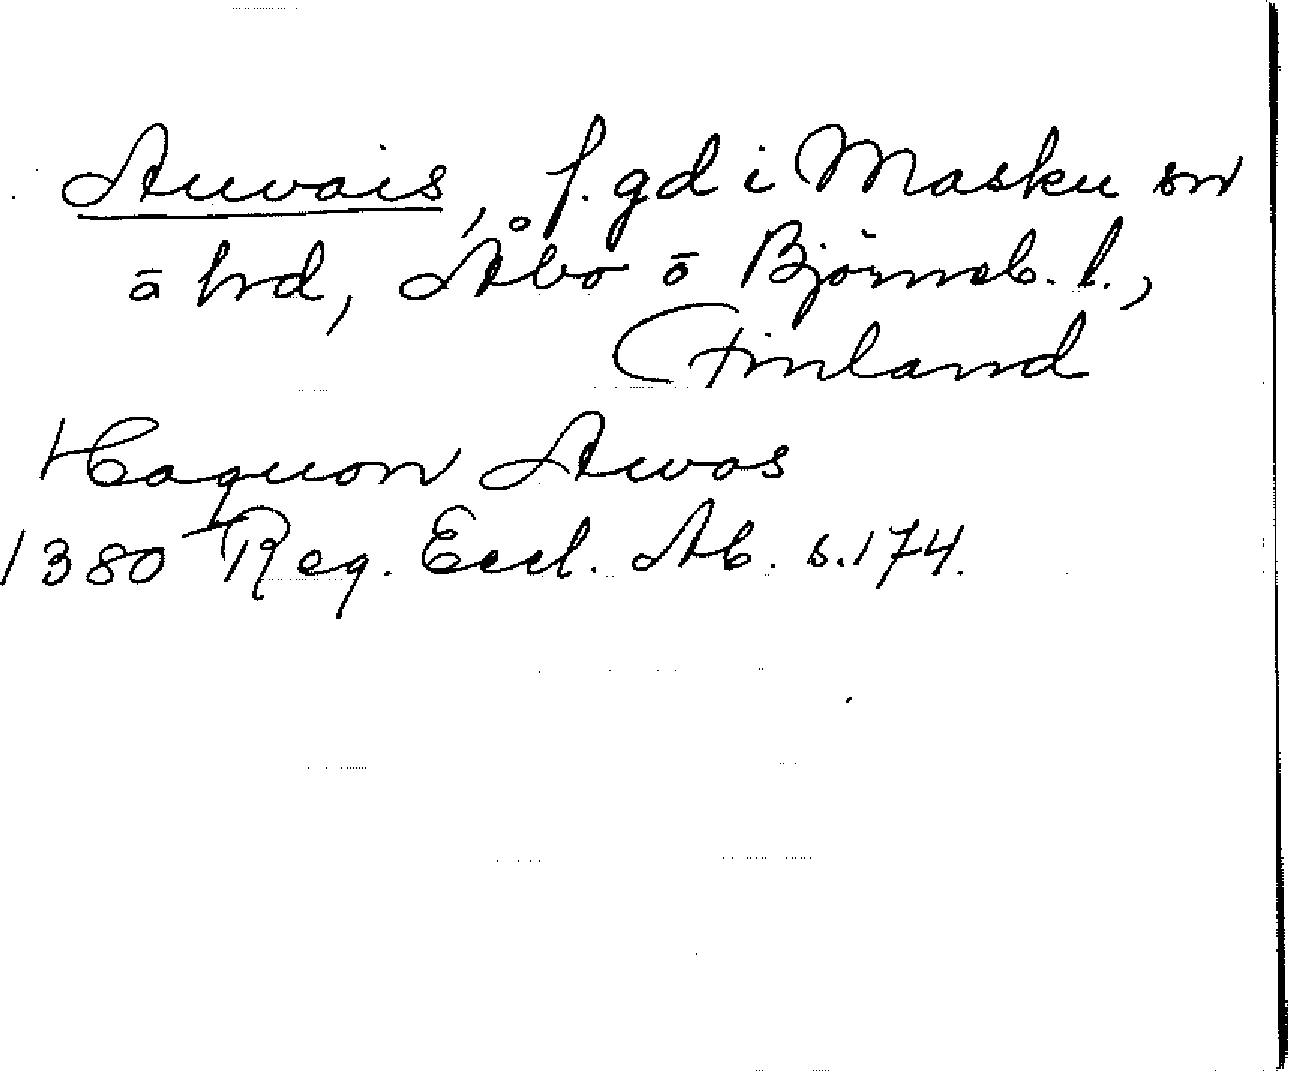 Auvais, f. gd i Masku sn
ō hd, Åbo ō Björneb. l.,
Finland
Haquon Auvas
1380 Reg. Eccl. Ab. s. 174.